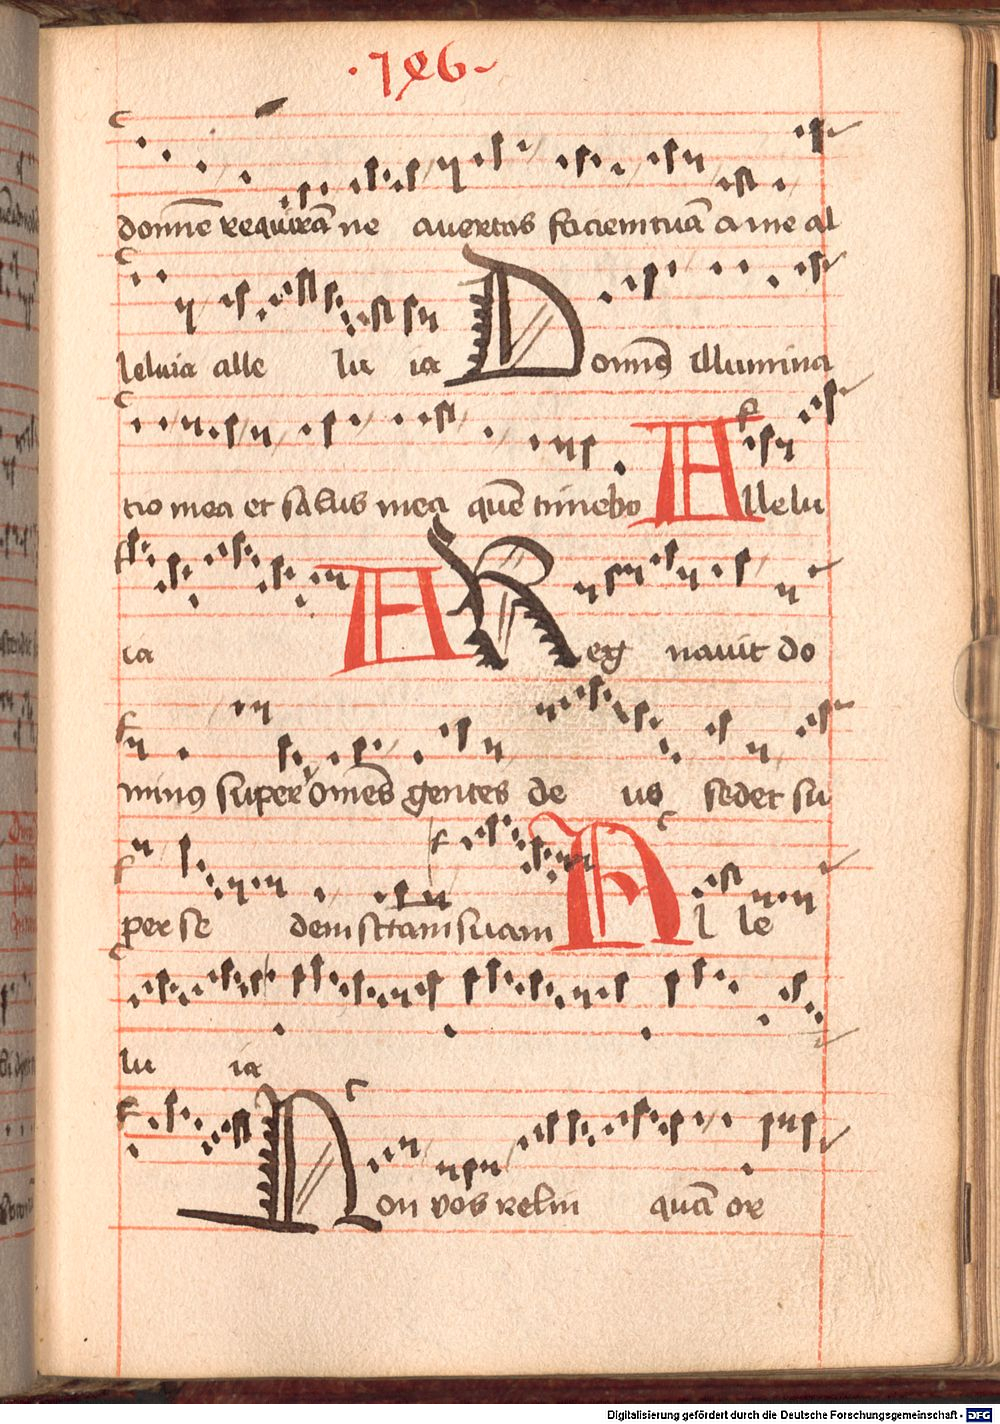 ·186·
domīe requirā ne auertas faciem tuā a me al
leluia alle lu ia Domin9 illumina
tio mea et salus mea quē timebo Allelu
ia A Reg nauit do
min9 super om̄es gentes de us sedet su
per se dem sctam suam Al le
lu ia
Non vos relin quā or
Digitalisierung gefördert durch die Deutsche Forschungsgemeinschaft - DFG